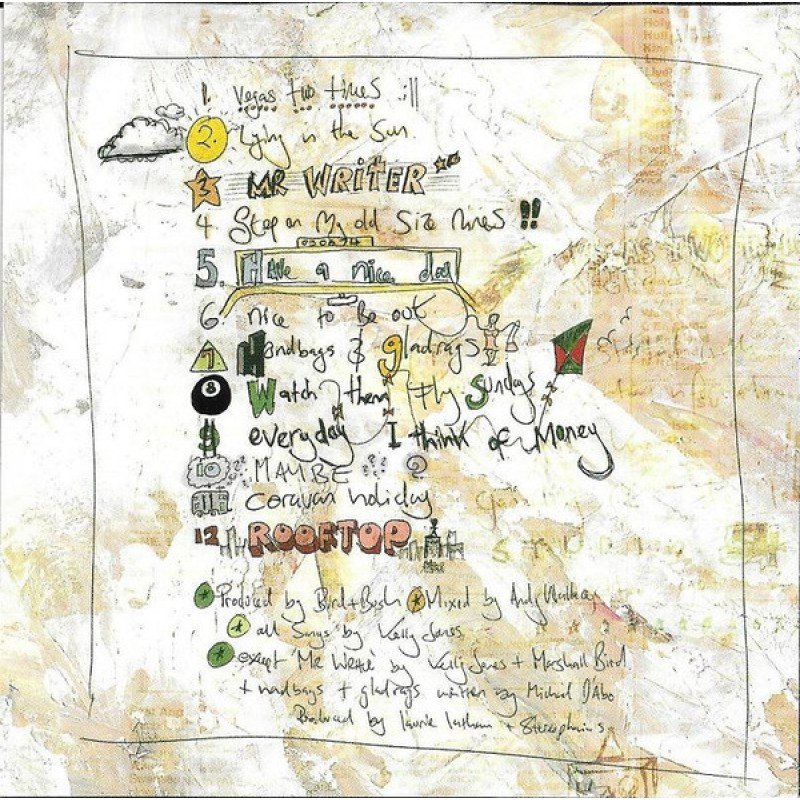 1. Vegas two times :||
2. Lying in the Sun
3 MR WRITER
4 Step on My old Size nines !!
5. Have a nice day
6. nice to Be out.
7 Handbags & gladrags
8 Watch them Fly Sundys
9 everyday I think of Money
10 MAYBE ???
11 caravan holiday
12 ROOFTOP
* Produced by Bird + Bush * Mixed by Andy Wallace
* all Songs by Kelly Jones
* except 'Mr Writer' by Kelly Jones + Marshall Bird
+ handbags + gladrags written by Michael D'Abo
Produced by Laurie Latham + Stereophonics